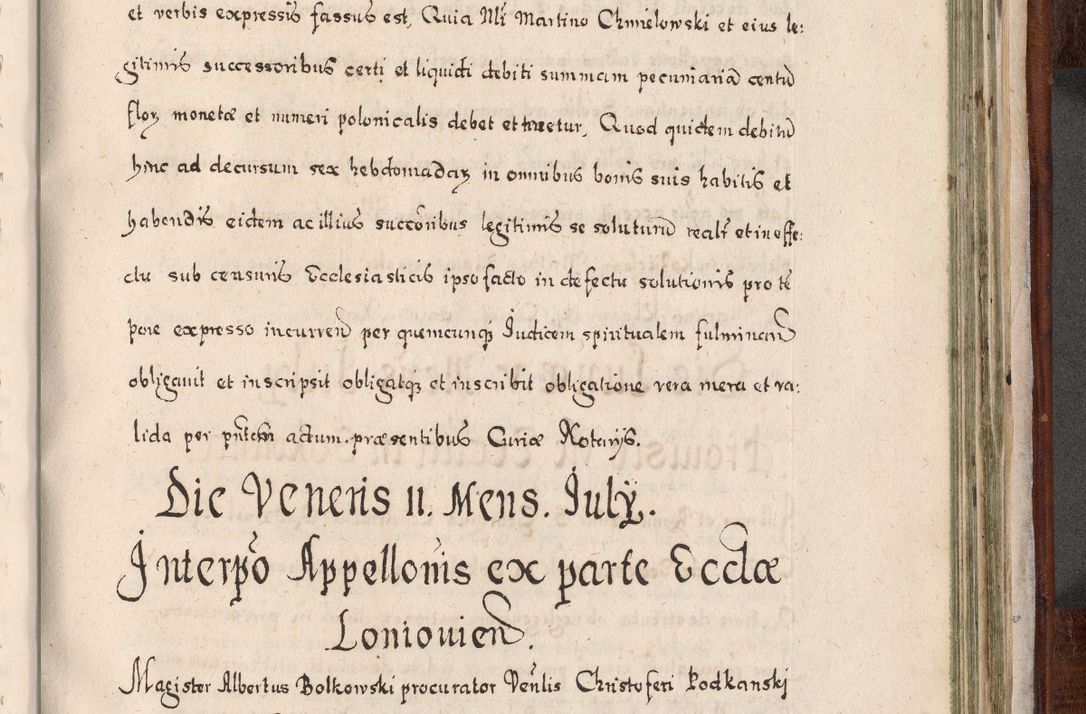 et verbis expressis fassus est, Quia Nli Martino Chmielowski et eius le:
gitimis successoribus certi et liquidi debiti summam pecuniariã centũ
flor, monetæ et numeri polonicalis debet et tenetur, Quod quidem debitũ
hinc ad decursum sex hebdomadar, in omnibus bonis suis habitis et
habendis eidem ac illius succõribus legitimis se soluturũ realr et in effe:
ctu sub censuris Ecclesiasticis ipso facto in defectu solutionis pro tẽ
pore expresso incurreñ per quemcunq, Judicem spiritualem fulminañ
obligauit et inscripsit obligatq, et inscribit obligatione vera mera et va:
lida per pñtem actum. præsentibus Curiæ Notarijs.
Die Veneris 11. Mens. July.
Interpõ Appellonis ex parte Ecclæ
Loniouieñ.
Magister Albertus Bolkowski procurator Venlis Christoferi Podkanskj